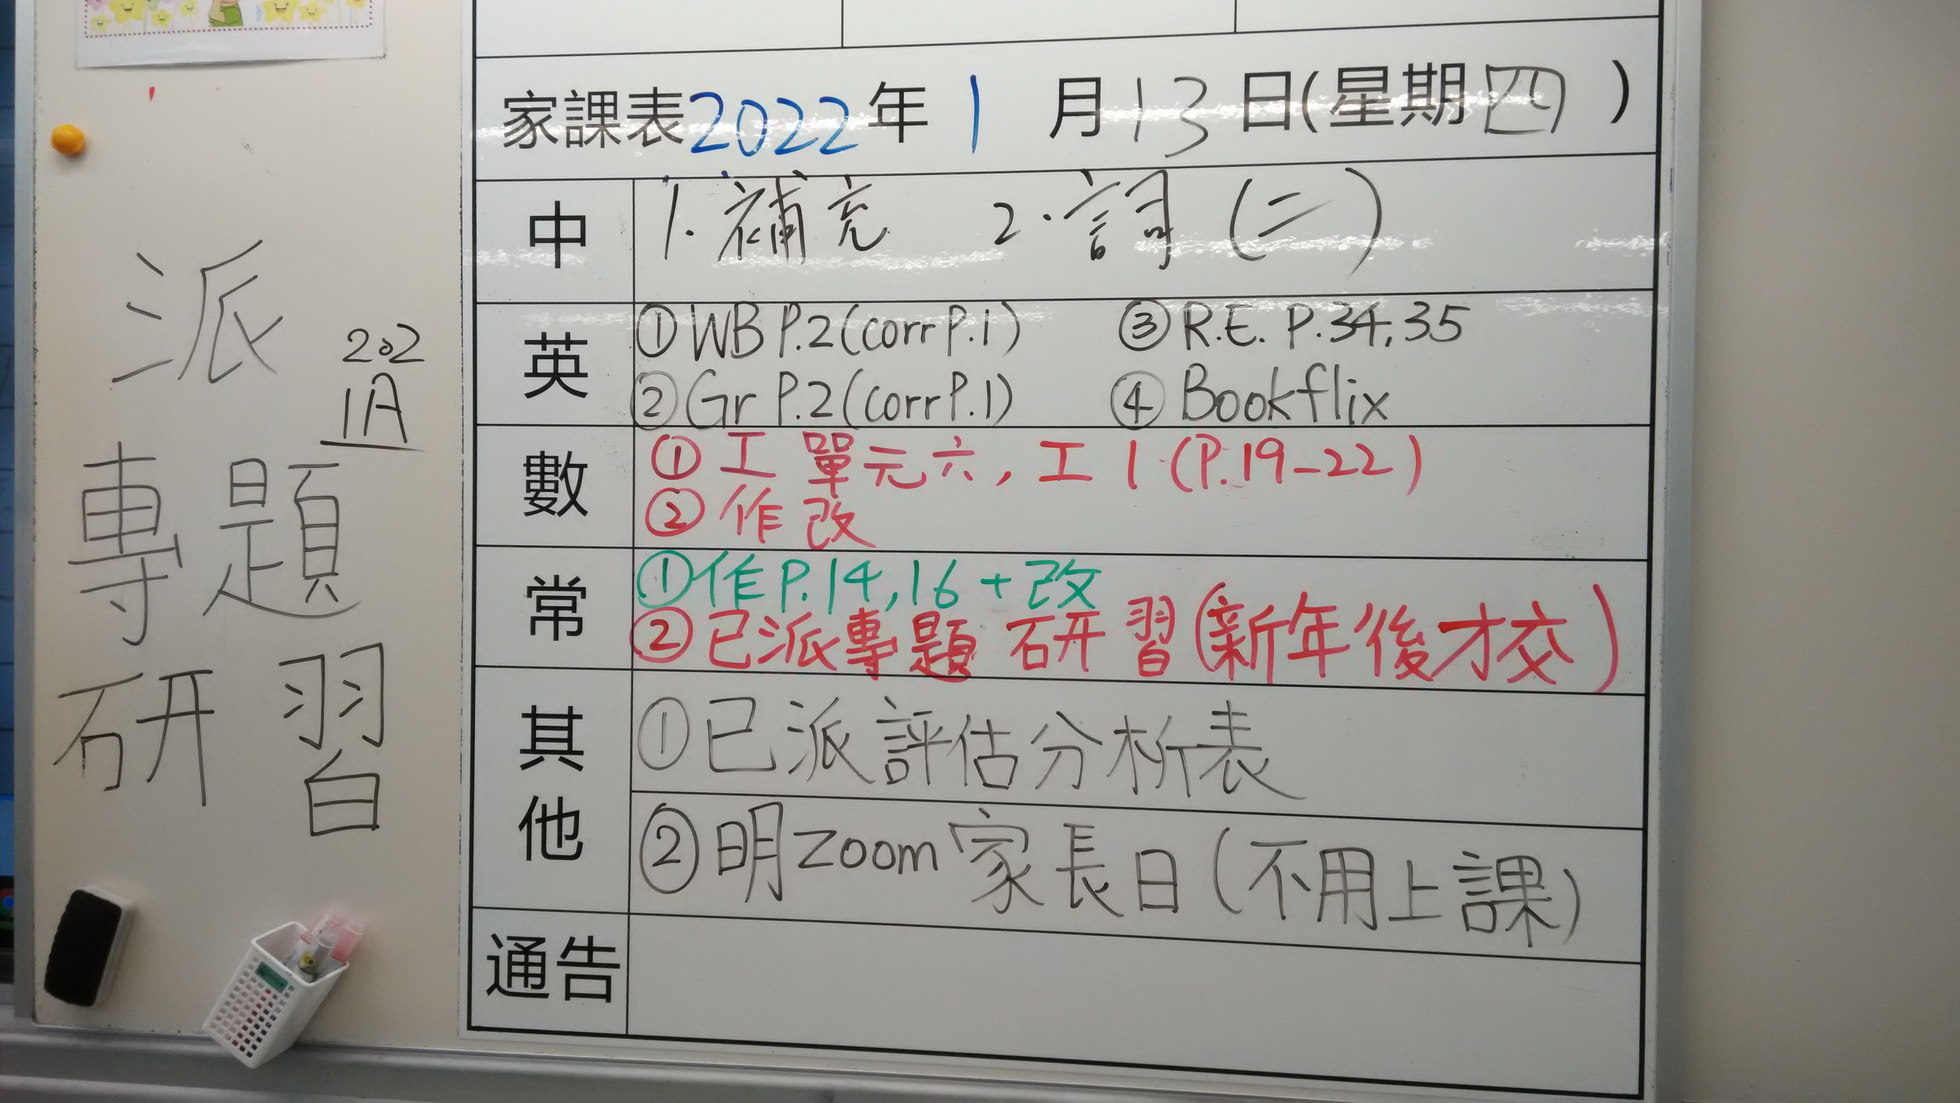 家課表2022年1月13日(星期四)
中
1.補充 2.詞(二)
英
①WB P.2(corr P.1) ③R.E. P.34,35
②Gr P.2(corr P.1) ④Bookflix
數
①工單元六,工1(P.19-22)
②作改
常
①作P.14,16+改
②已派專題研習(新年後才交)
其他
①已派評估分析表
②明Zoom家長日(不用上課)
通告
派
202
1A
專題
研習